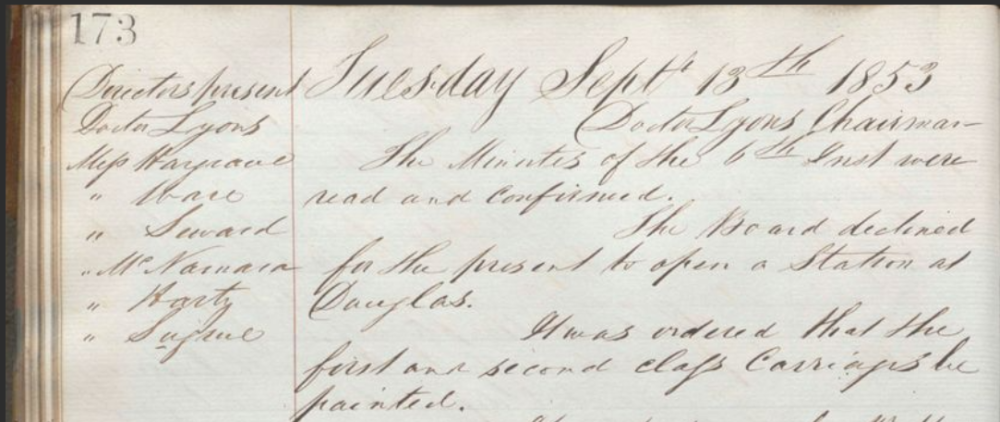 173
Directors present
Tuesday Sept. 13th 1853
Doctor Lyons
Doctor Lyons Chairman
Mess Hargrave
The Minutes of the 6th Inst were
" Ware
read and confirmed.
" Seward
The Board declined
" McNamara
for the present to open a Station at
" Harty
Douglas.
" Sugrue
It was ordered that the
first and second class Carriages be
painted.